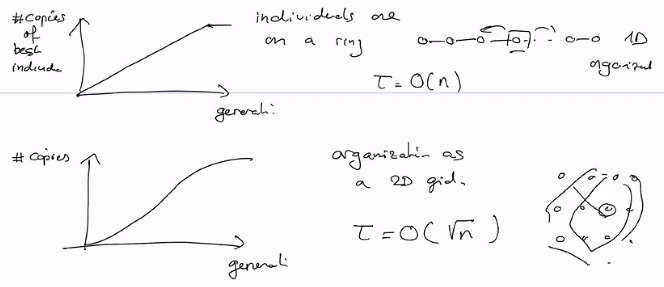 #copies
of
best
individe
generati:
individuals are
on a ring
1D
organizat
τ = O(n)
# copies
generati:
organizatin as
a 2D grid.
τ = O(√n)